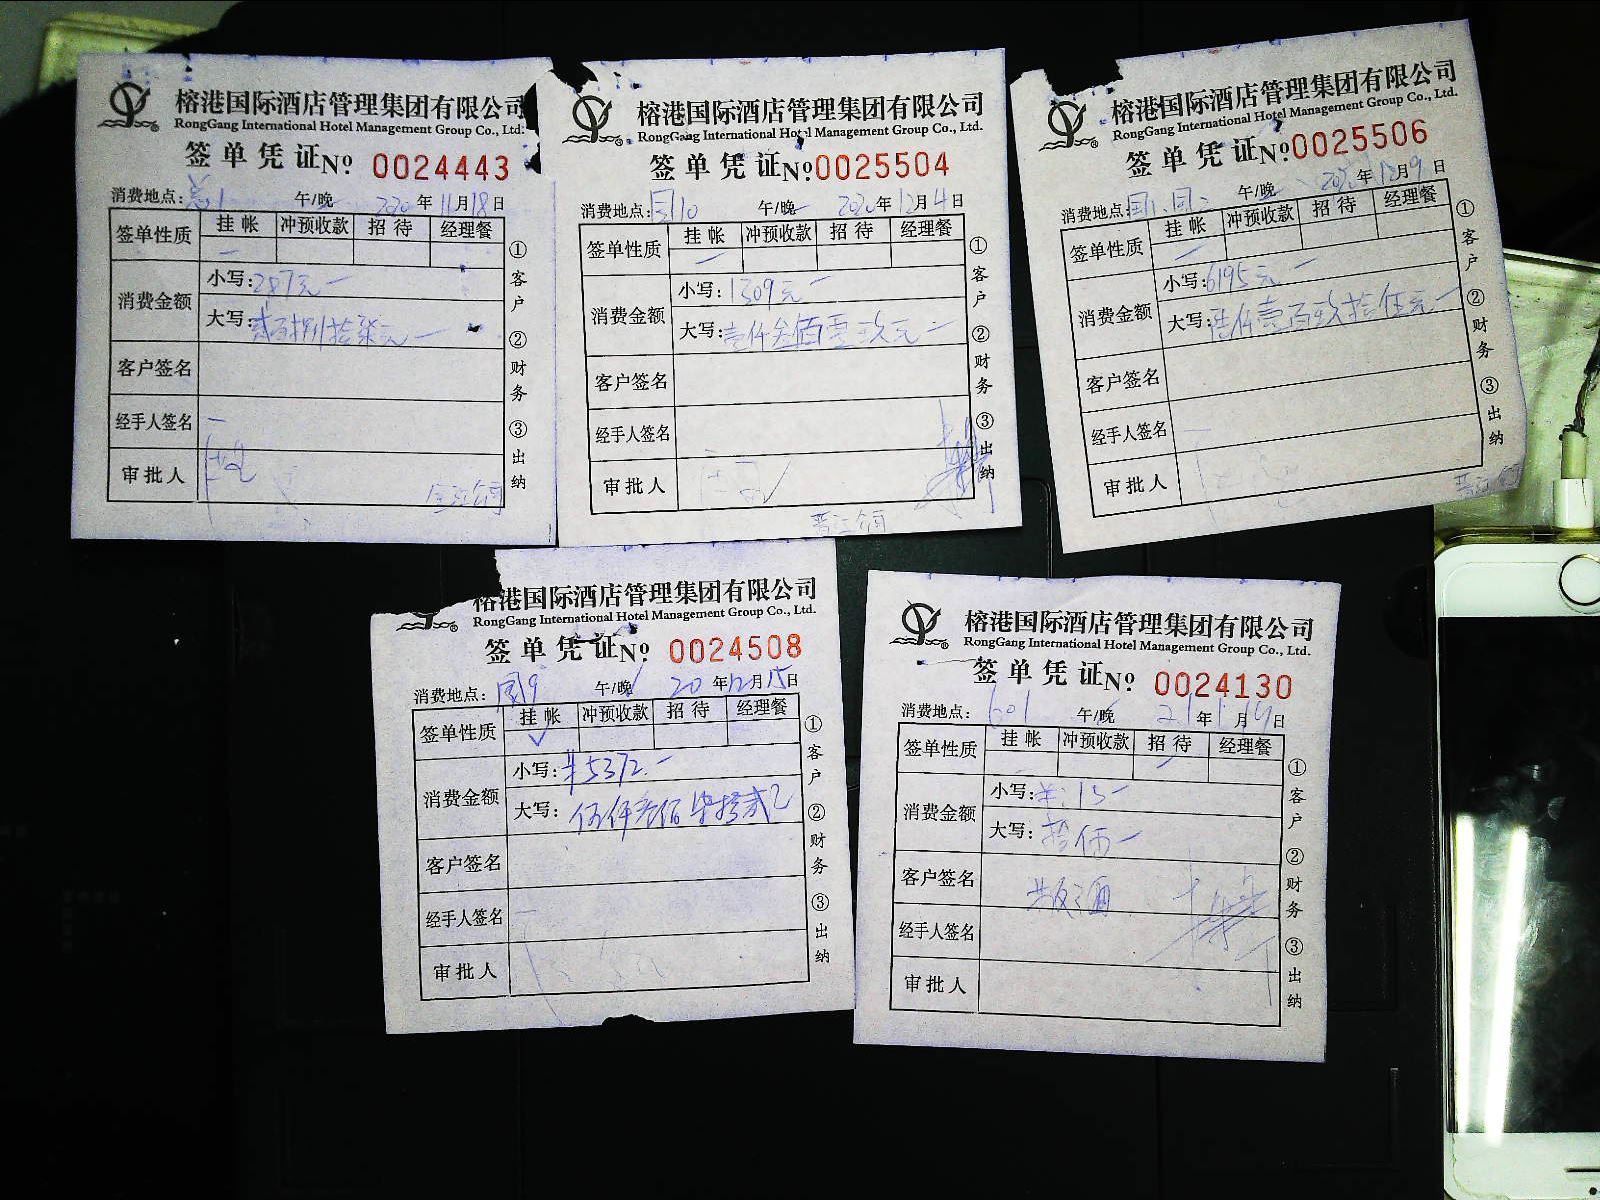 榕港国际酒店管理集团有限公司
RongGang International Hotel Management Group Co., Ltd.
签单凭证 No 0024443
消费地点: 午/晚 2020年11月18日
签单性质 挂帐 冲预收款 招待 经理餐
消费金额 小写:287元
大写:贰佰捌拾柒元
客户签名
经手人签名
审批人
①客户 ②财务 ③出纳
榕港国际酒店管理集团有限公司
RongGang International Hotel Management Group Co., Ltd.
签单凭证 No 0025504
消费地点:国10 午/晚 2020年12月4日
签单性质 挂帐 冲预收款 招待 经理餐
消费金额 小写:1309元
大写:壹仟叁佰零玖元
客户签名
经手人签名
审批人
晋江
①客户 ②财务 ③出纳
榕港国际酒店管理集团有限公司
RongGang International Hotel Management Group Co., Ltd.
签单凭证 No 0025506
消费地点: 午/晚 2020年12月9日
签单性质 挂帐 冲预收款 招待 经理餐
消费金额 小写:6195元
大写:陆仟壹百玖拾伍元
客户签名
经手人签名
审批人
晋江
①客户 ②财务 ③出纳
榕港国际酒店管理集团有限公司
RongGang International Hotel Management Group Co., Ltd.
签单凭证 No 0024508
消费地点:国9 午/晚 20年12月15日
签单性质 挂帐 冲预收款 招待 经理餐
消费金额 小写:¥5372.
大写:伍仟叁佰柒拾贰
客户签名
经手人签名
审批人
①客户 ②财务 ③出纳
榕港国际酒店管理集团有限公司
RongGang International Hotel Management Group Co., Ltd.
签单凭证 No 0024130
消费地点:601 午/晚 21年1月 日
签单性质 挂帐 冲预收款 招待 经理餐
消费金额 小写:¥:15
大写:拾伍
客户签名
经手人签名
审批人
①客户 ②财务 ③出纳